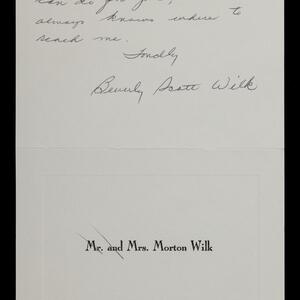 can do for you,
always knows where to
reach me.
Fondly
Beverly Scott Wilk
Mr. and Mrs. Morton Wilk